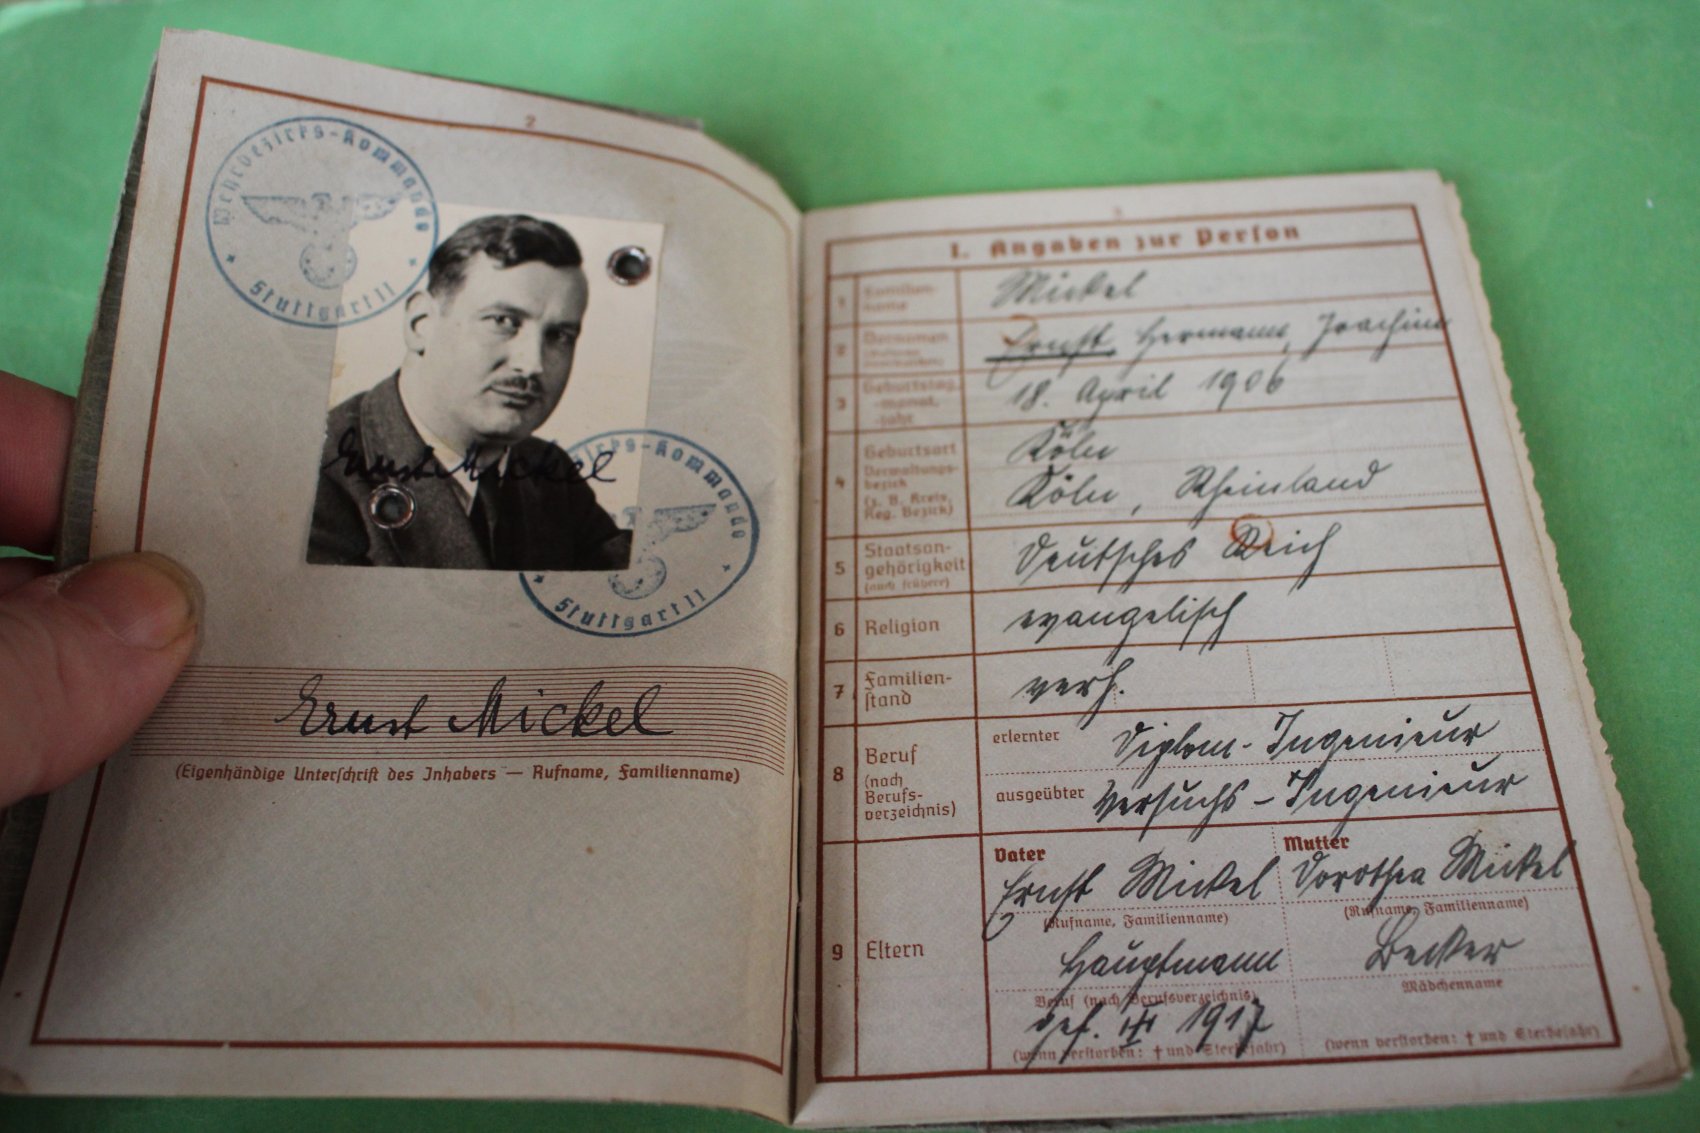 2
Wehrbezirks-Kommando
Stuttgart II
Ernst Mickel
Wehrbezirks-Kommando
Stuttgart II
Ernst Mickel
(Eigenhändige Unterschrift des Inhabers — Rufname, Familienname)
3
I. Angaben zur Person
1 Familien-
name
Mickel
2 Vornamen
Ernst, Hermann, Joachim
3 Geburtstag,
-monat,
-jahr
18. April 1906
4 Geburtsort
Verwaltungs-
bezirk
(z. B. Kreis,
Reg. Bezirk)
Köln
Köln, Rheinland
5 Staatsan-
gehörigkeit
(auch frühere)
Deutsches Reich
6 Religion
evangelisch
7 Familien-
stand
verh.
8 Beruf
(nach
Berufs-
verzeichnis)
erlernter Diplom-Ingenieur
ausgeübter Versuchs-Ingenieur
9 Eltern
Vater
Ernst Mickel
(Rufname, Familienname)
Hauptmann
Beruf (nach Berufsverzeichnis)
gef. III 1917
(wenn verstorben: † und Sterbejahr)
Mutter
Dorothea Mickel
(Rufname, Familienname)
Becker
Mädchenname
(wenn verstorben: † und Sterbejahr)